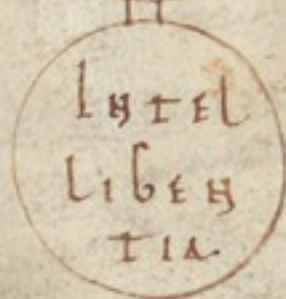 Intel
liben
tia